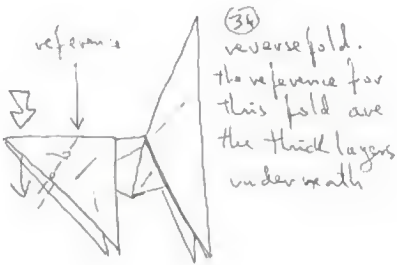 34
reference
reversefold.
the reference for
this fold are
the thick layers
underneath